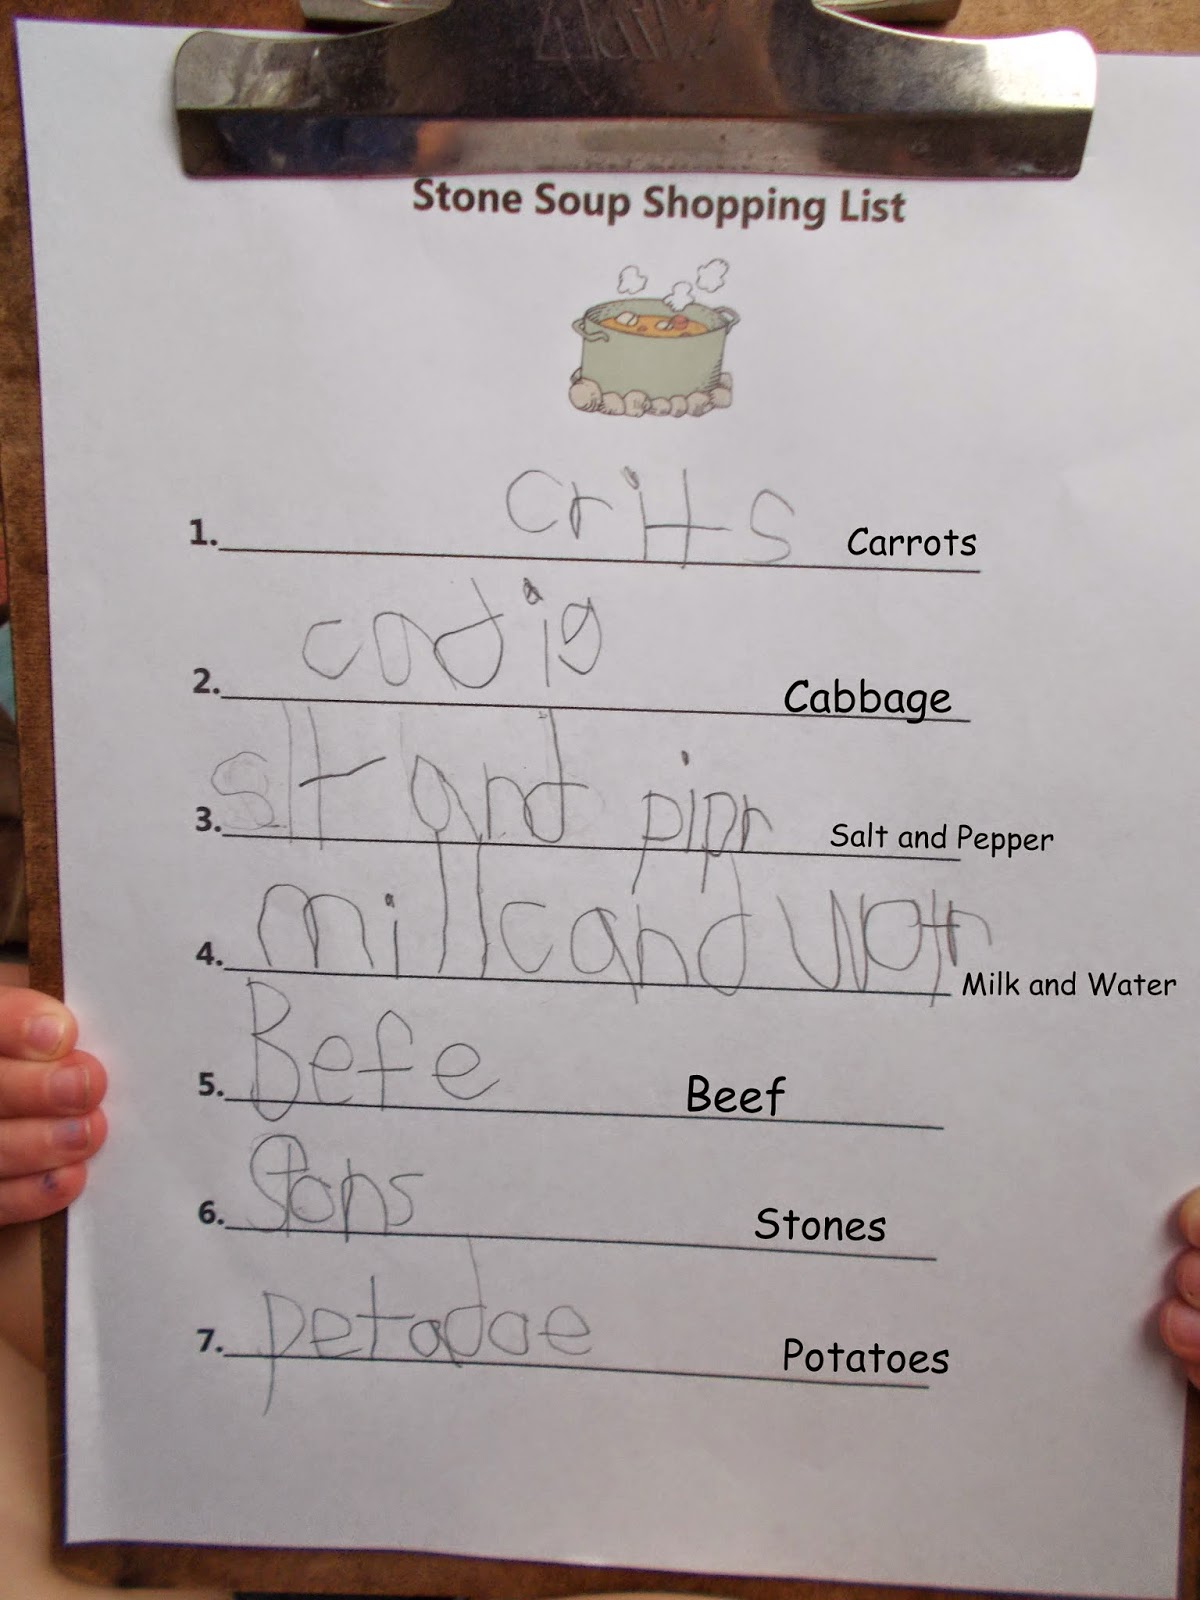 Stone Soup Shopping List
1. critts Carrots
2. cadig Cabbage
3. slt and pipr Salt and Pepper
4. millc and watr Milk and Water
5. Befe Beef
6. Stons Stones
7. petadoe Potatoes